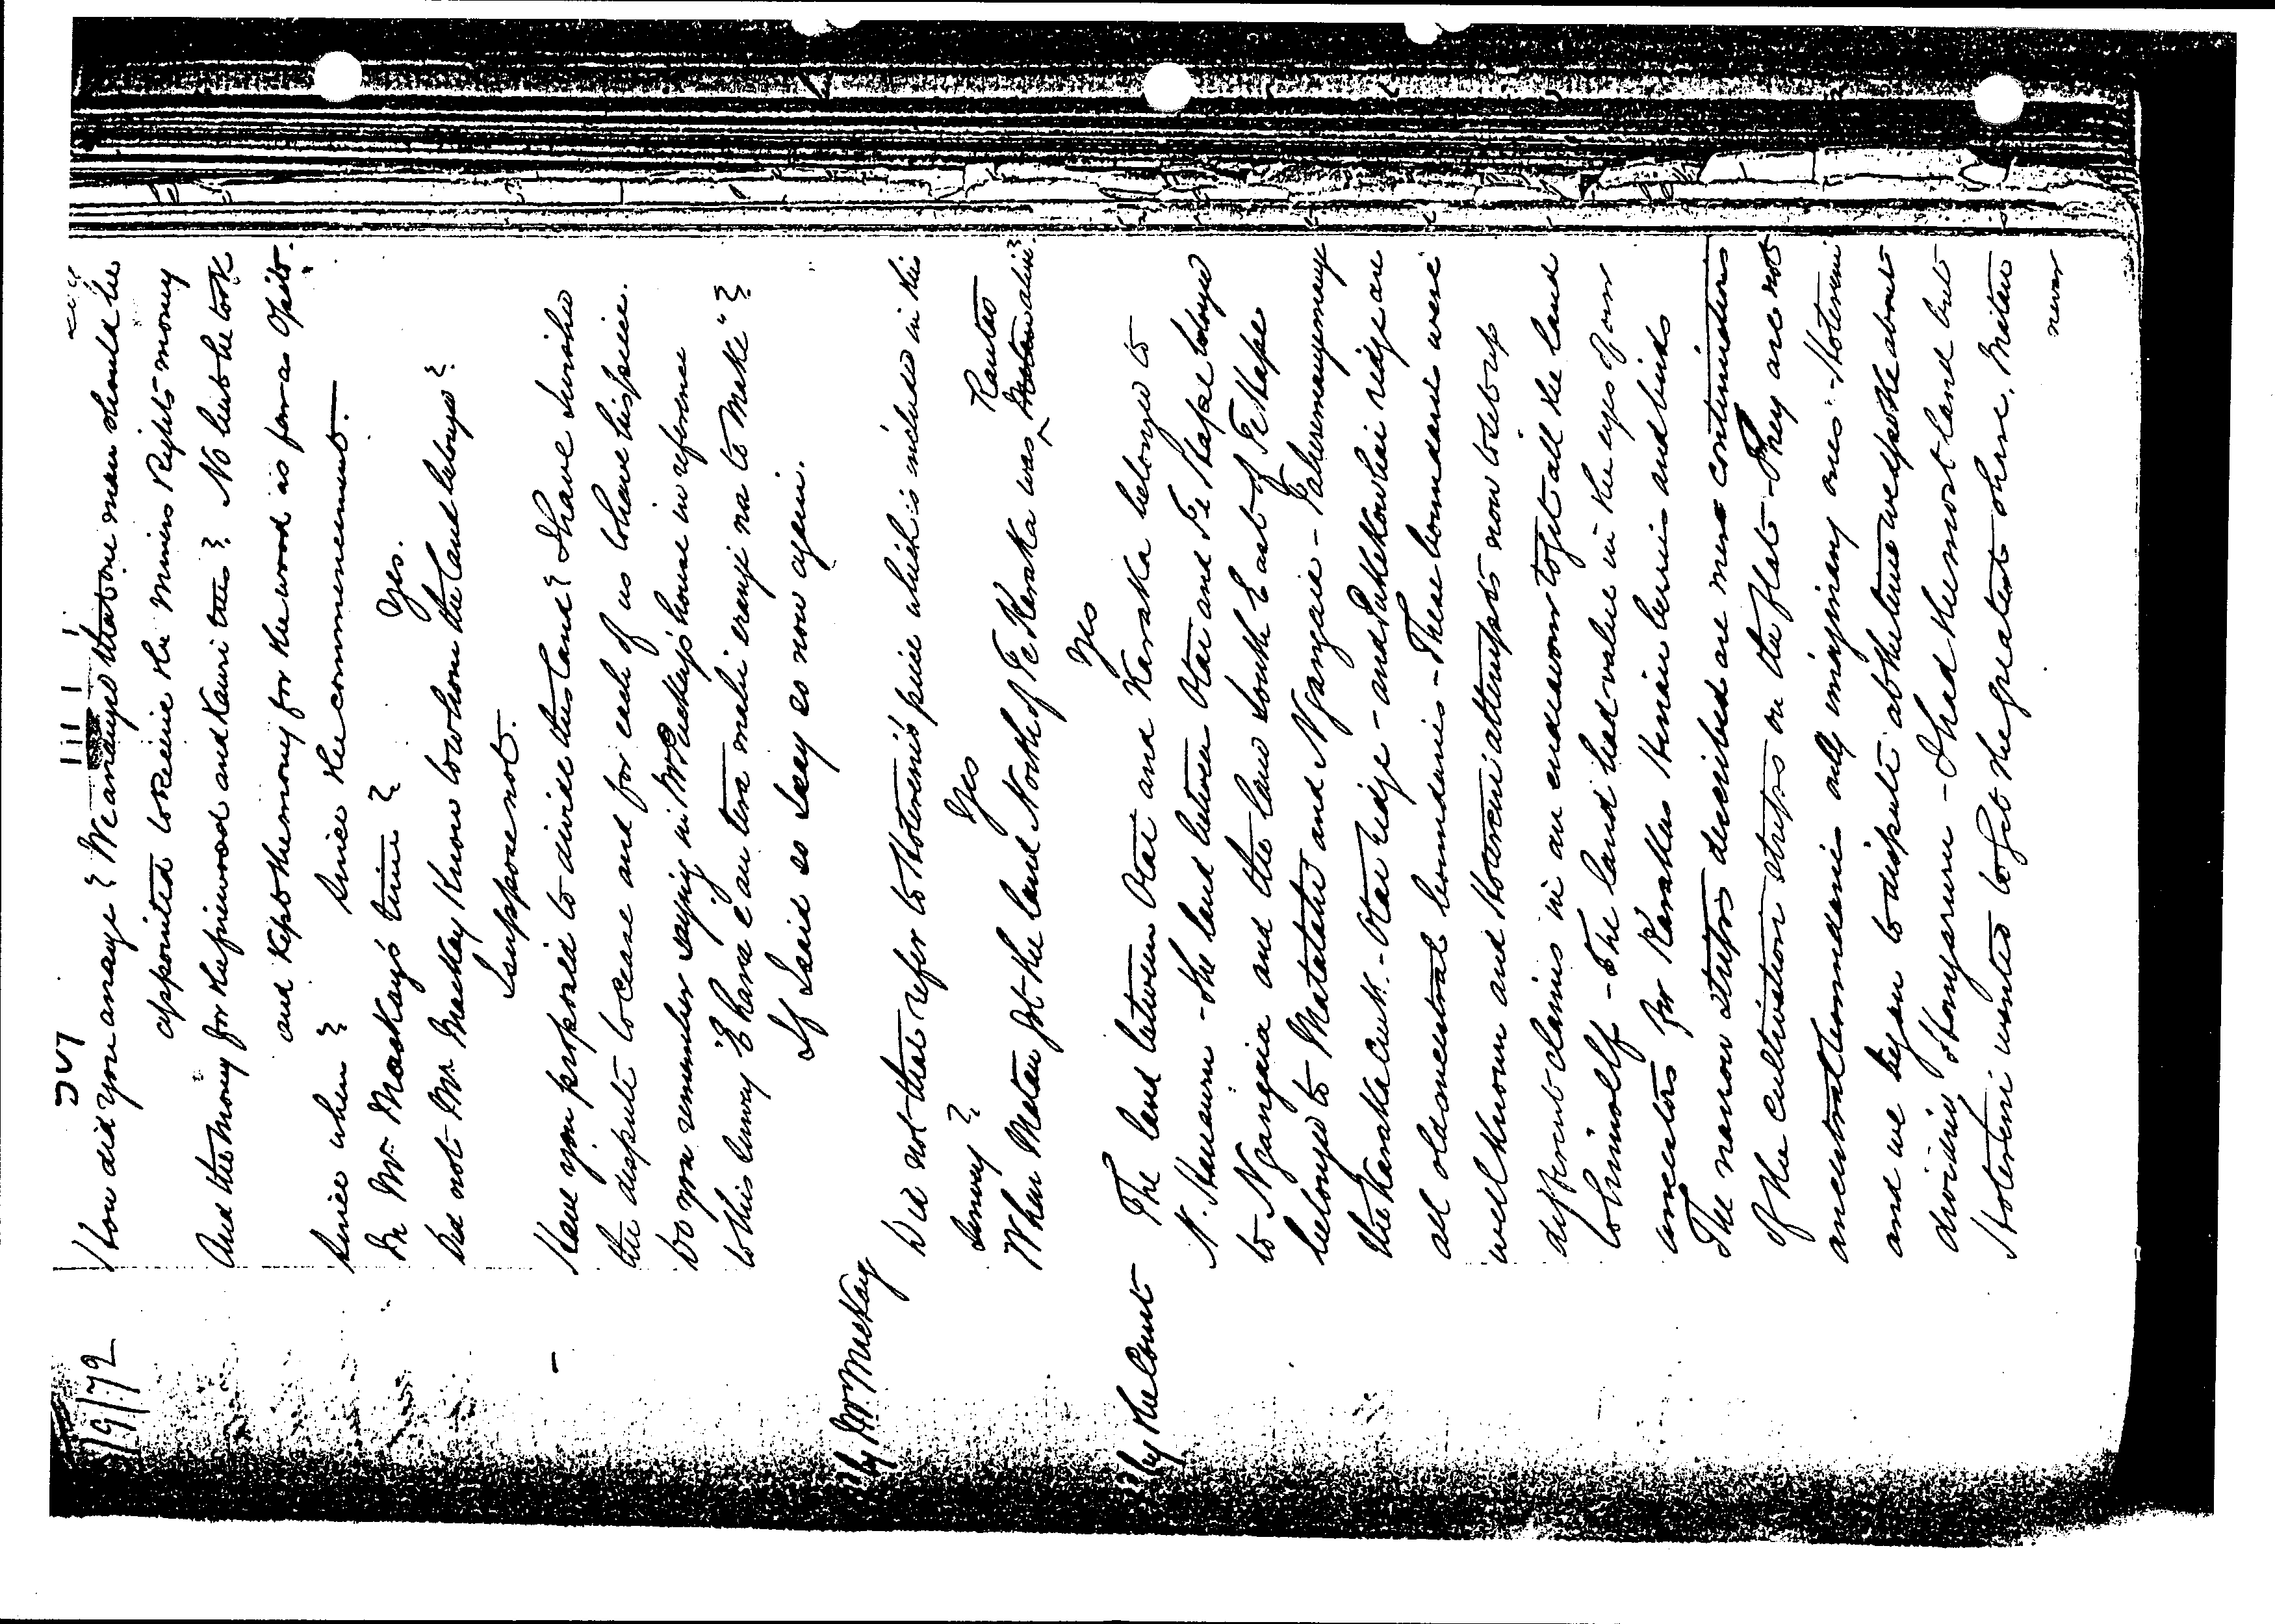 19/1/72
How did you arrange? We arranged that one man should be
appointed to receive the Miners Rights money
And the money for the firewood and Kauri trees? No but he took
and kept the money for the wood as far as Opito.
Since when? Since the commencement.
In Mr. Mackay's time? Yes.
Did not Mr Mackay know to whom the land belonged?
I suppose not.
Have you proposed to divide this land? I have wished
the dispute to cease and for each of us to have his piece.
Do you remember saying in Mr house in reference
to this survey "E hara e au tera mahi erangi na to Make"?
If I said so I say so now again.
by Mr Mackay
Did not that refer to Hotereni's piece which is included in this
survey? Yes
When Matau got the land North of Te Karaka was Rautao alive?
Yes
by the Court
The land between Otai and Karaka belonged to
N. Hauauru - the land between Otai and Te Hape belonged
to Ngangaia and the land South East of Te Hape
belonged to Matatahi and Ngangaia -
the Karaka Creek - Otai ridge - and Pukekowhai ridge are
all old ancestral boundaries - These boundaries were
well known and Hotereni attempts now to set up
different claims in an endeavour to get all the land
to himself - The land had value in the eyes of our
ancestors for Karakas Hinau berries and birds
The narrow strips described are mere continuations
of the cultivation strips on the flat - They are not
ancestral boundaries only imaginary ones - Hotereni
and we began to dispute at the time we spoke about
dividing - I had the most land but
Hotereni wanted to get the greatest share. Matau
never